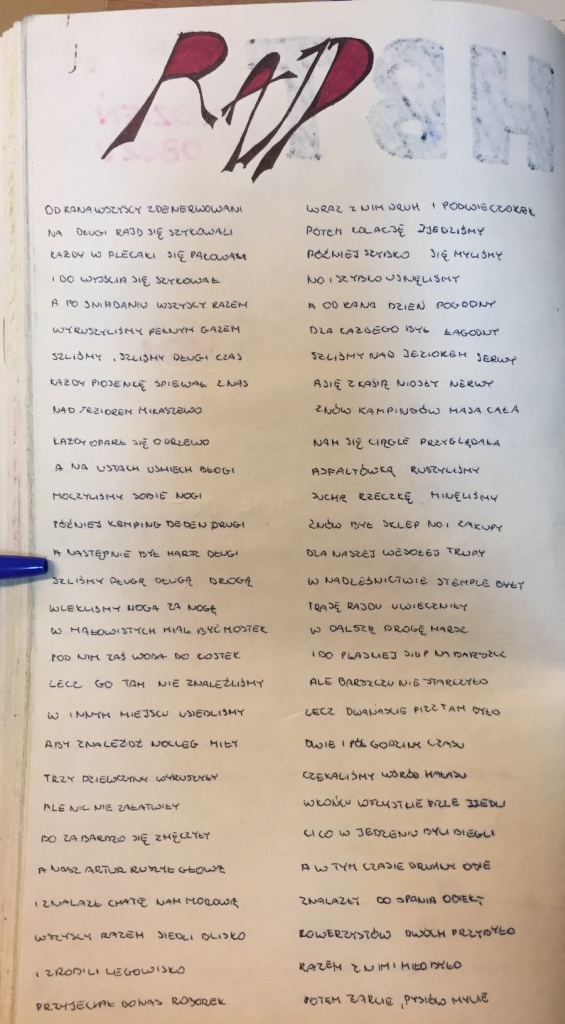 RAJD
OD RANA WSZYSCY ZDENERWOWANI
NA DŁUGI RAJD SIĘ SZYKOWALI
KAŻDY W PLECAKI SIĘ PAKOWAŁ
I DO WYJŚCIA SIĘ SZYKOWAŁ
A PO ŚNIADANIU WSZYSCY RAZEM
WYRUSZYLIŚMY PEŁNYM GAZEM
SZLIŚMY, SZLIŚMY DŁUGI CZAS
KAŻDY PIOSENKĘ ŚPIEWAŁ Z NAS
NAD JEZIOREM MIKASZEWO
KAŻDY OPARŁ SIĘ O DRZEWO
A NA USTACH UŚMIECH BŁOGI
MOCZYLIŚMY SOBIE NOGI
PÓŹNIEJ KEMPING DEDEN DRUGI
A NASTĘPNIE BYŁ MARSZ DŁUGI
SZLIŚMY DŁUGĄ DŁUGĄ DROGĄ
WLEKLIŚMY NOGA ZA NOGĄ
W MAŁOWISTYCH MIAŁ BYĆ MOSTEK
POD NIM ZAŚ WODA DO KOSTEK
LECZ GO TAM NIE ZNALEŹLIŚMY
W INNYM MIEJSCU USIEDLIŚMY
ABY ZNALEŹDŹ NOCLEG MIŁY
TRZY DZIEWCZYNY WYRUSZYŁY
ALE NIC NIE ZAŁATWIŁY
BO ZA BARDZO SIĘ ZMĘCZYŁY
A NASZ ARTUR RUSZYŁ GŁOWĄ
I ZNALAZŁ CHATĘ NAM MOROWĄ
WSZYSCY RAZEM SIEDLI BLISKO
I ZROBILI LEGOWISKO
PRZYJECHAŁ DO NAS ROBOREK
WRAZ Z NIM DRUH I PODWIECZOREK
POTEM KOLACJĘ ZJEDLIŚMY
PÓŹNIEJ SZYBKO SIĘ MYLIŚMY
NO I SZYBKO USNĘLIŚMY
A OD RANA DZIEŃ POGODNY
DLA KAŻDEGO BYŁ ŁAGODNY
SZLIŚMY NAD JEZIOREM SERWY
A SIĘ Z KASIĄ NIOSŁY NERWY
ZNÓW KAMPINGÓW MASA CAŁA
NAM SIĘ CIĄGLE PRZYGLĄDAŁA
ASFALTÓWKĄ RUSZYLIŚMY
SUCHĄ RZECZKĘ MINĘLIŚMY
ZNÓW BYŁ SKLEP NO I ZAKUPY
DLA NASZEJ WESOŁEJ TRUPY
W NADLEŚNICTWIE STEMPLE BYŁY
TRASĘ RAJDU UWIECZNIŁY
W DALSZĄ DROGĘ MARSZ
I DO PŁASKIEJ SIUP NA BARSZCZ
ALE BARSZCZU NIE STARCZYŁO
LECZ DWANAŚCIE PIZZ TAM BYŁO
DWIE I PÓŁ GODZINY CZASU
CZEKALIŚMY WŚRÓD HAŁASU
W KOŃCU WSZYSTKIE PIZZE ZJEDLI
CI CO W JEDZENIU BYLI BIEGLI
A W TYM CZASIE DRUHNY OBIE
ZNALAZŁY DO SPANIA OBIEKT
ROWERZYSTÓW DWÓCH PRZYBYŁO
RAZEM Z NIMI MIŁO BYŁO
POTEM ŻARCIE, PYSIÓW MYCIE